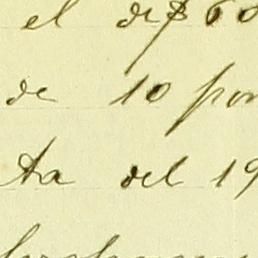 el de $ 60
de 10 por
ta del 19